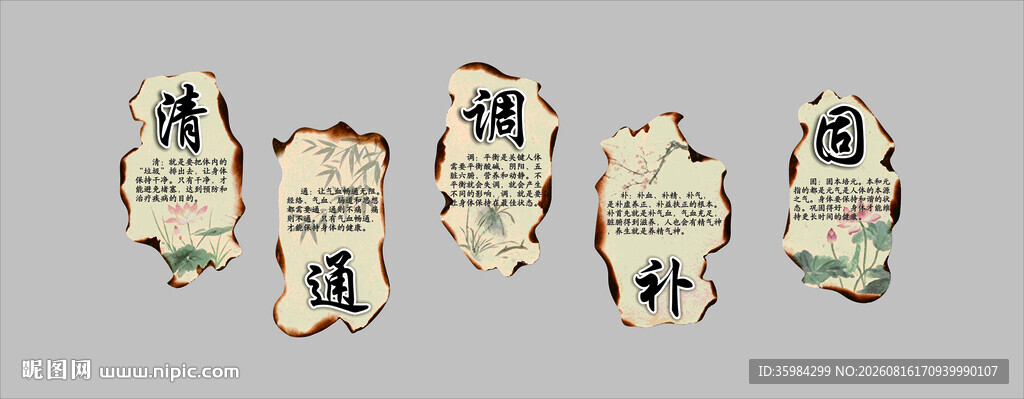 清
清：就是要把体内的
"垃圾"排出去，让身体
保持干净。只有干净，才
能避免堵塞，达到预防和
治疗疾病的目的。
通：让气血畅通无阻。
经络、气血、肠道和思想
都需要通，通则不痛，痛
则不通。只有气血畅通，
才能保持身体的健康。
通
调
调：平衡是关健人体
需要平衡酸碱、阴阳、五
脏六腑、营养和动静。不
平衡就会失调，就会产生
不同的影响，调，就是要
让身体保持在最佳状态。
补：补血、补精、补气，
是补益养正、补益扶正的根本。
补首先就是补气血，气血充足，
脏腑得到滋养，人也会有精气神
，养生就是养精气神。
补
固
固：固本培元。本和元
指的都是元气是人体的本源
之气。身体要保持和谐的状
态。巩固得好，身体才能维
持更长时间的健康
昵图网 www.nipic.com
ID:35984299 NO:20260816170939990107